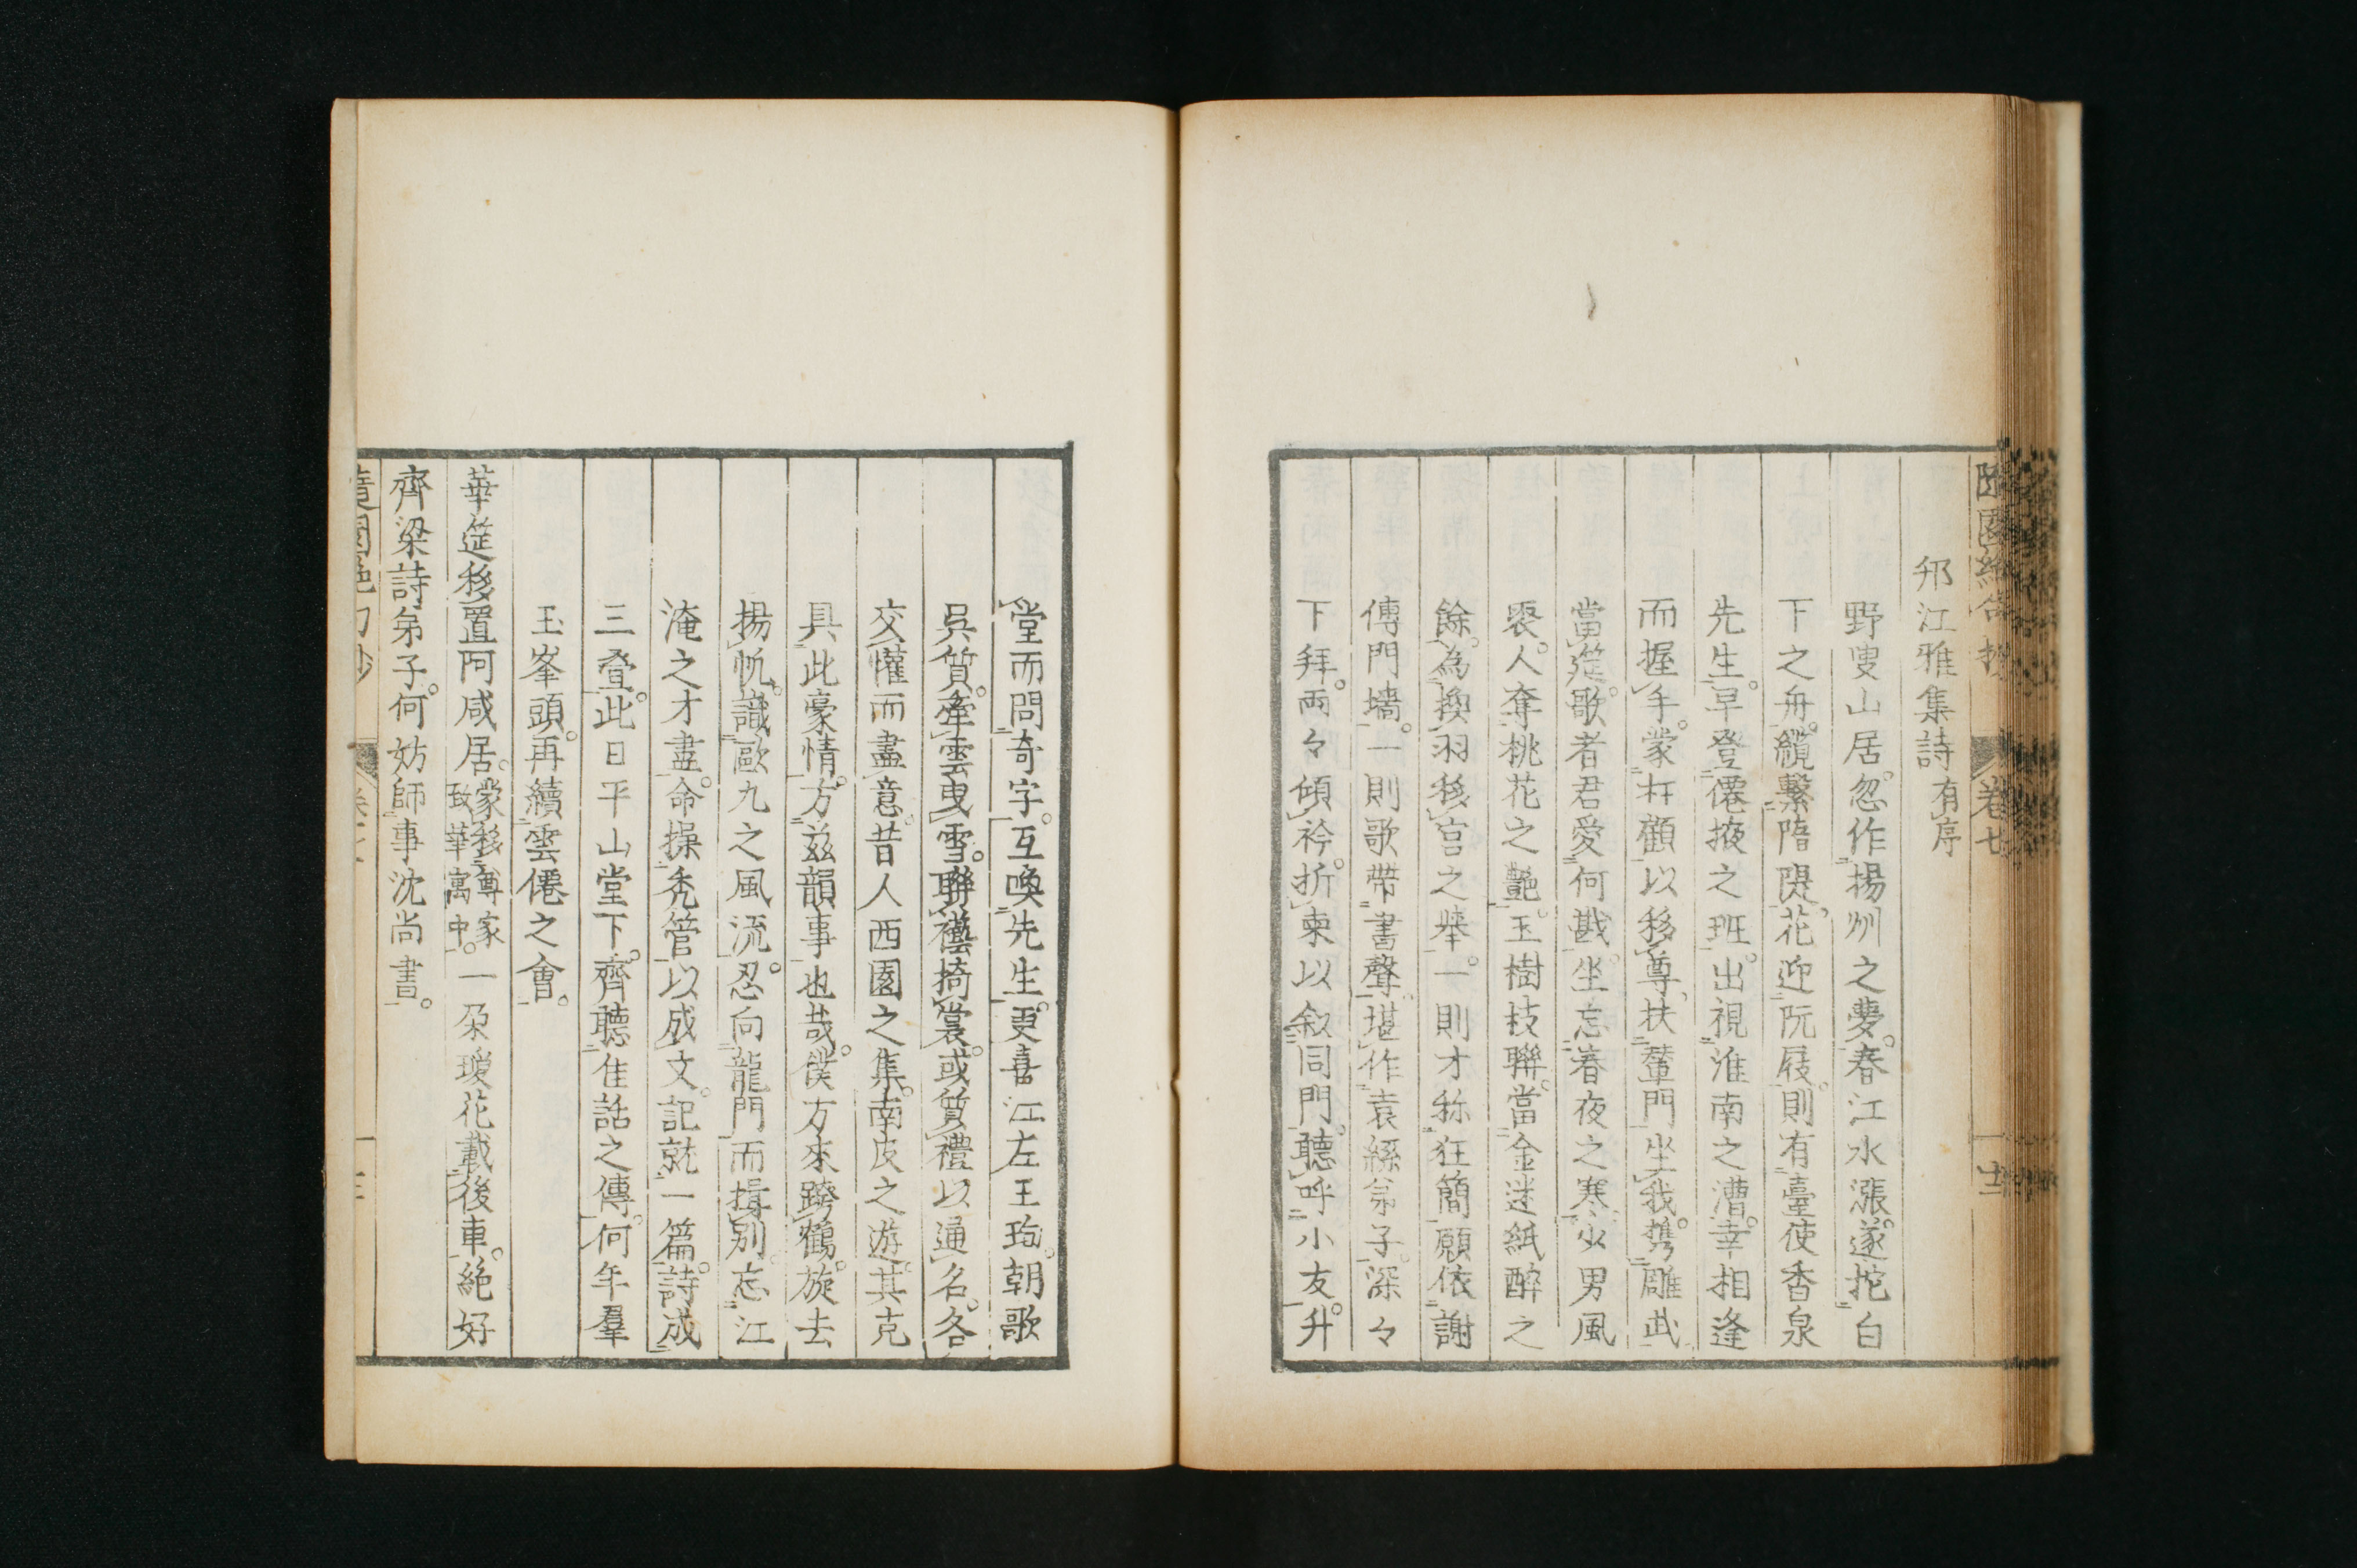 卷七
邗江雅集詩有序
野叟山居。忽作揚州之夢。春江水漲。遂挖白
下之舟。纜繫隋隄。花迎阮屐。則有臺使香泉
先生。早登僊掖之班。出視淮南之漕。幸相逢
而握手。蒙枉顧以移尊。扶輦門坐我。携雕武
當筵。歌者君愛何戡。坐忘春夜之寒。少男風
裘。人奪桃花之艷。玉樹枝聯。當金迷紙醉之
餘。為換羽移宮之舉。一則才称狂簡。願依謝
傅門墻。一則歌帶書聲。堪作袁絲弟子。深々
下拜。兩々傾衿。折柬以叙同門。聽呼小友。升
堂而問奇字。互喚先生。更喜江左王珣。朝歌
吳質。牽雲曳雪。聯襼掎裳。或質禮以通名。各
交懽而盡意。昔人西園之集。南皮之遊。其克
具此豪情。方兹韻事也哉。僕方來跨鶴。旋去
揚帆。識歐九之風流。忍向龍門而揖別。忘江
淹之才盡。命操秃管以成文。記就一篇。詩成
三疊。此日平山堂下。齊聽佳話之傳。何年羣
玉峯頭。再續雲僊之會。
華筵移置阿咸居。蒙移尊家致華寓中。一朶瓊花載後車。絕好
齊梁詩弟子。何妨師事沈尚書。